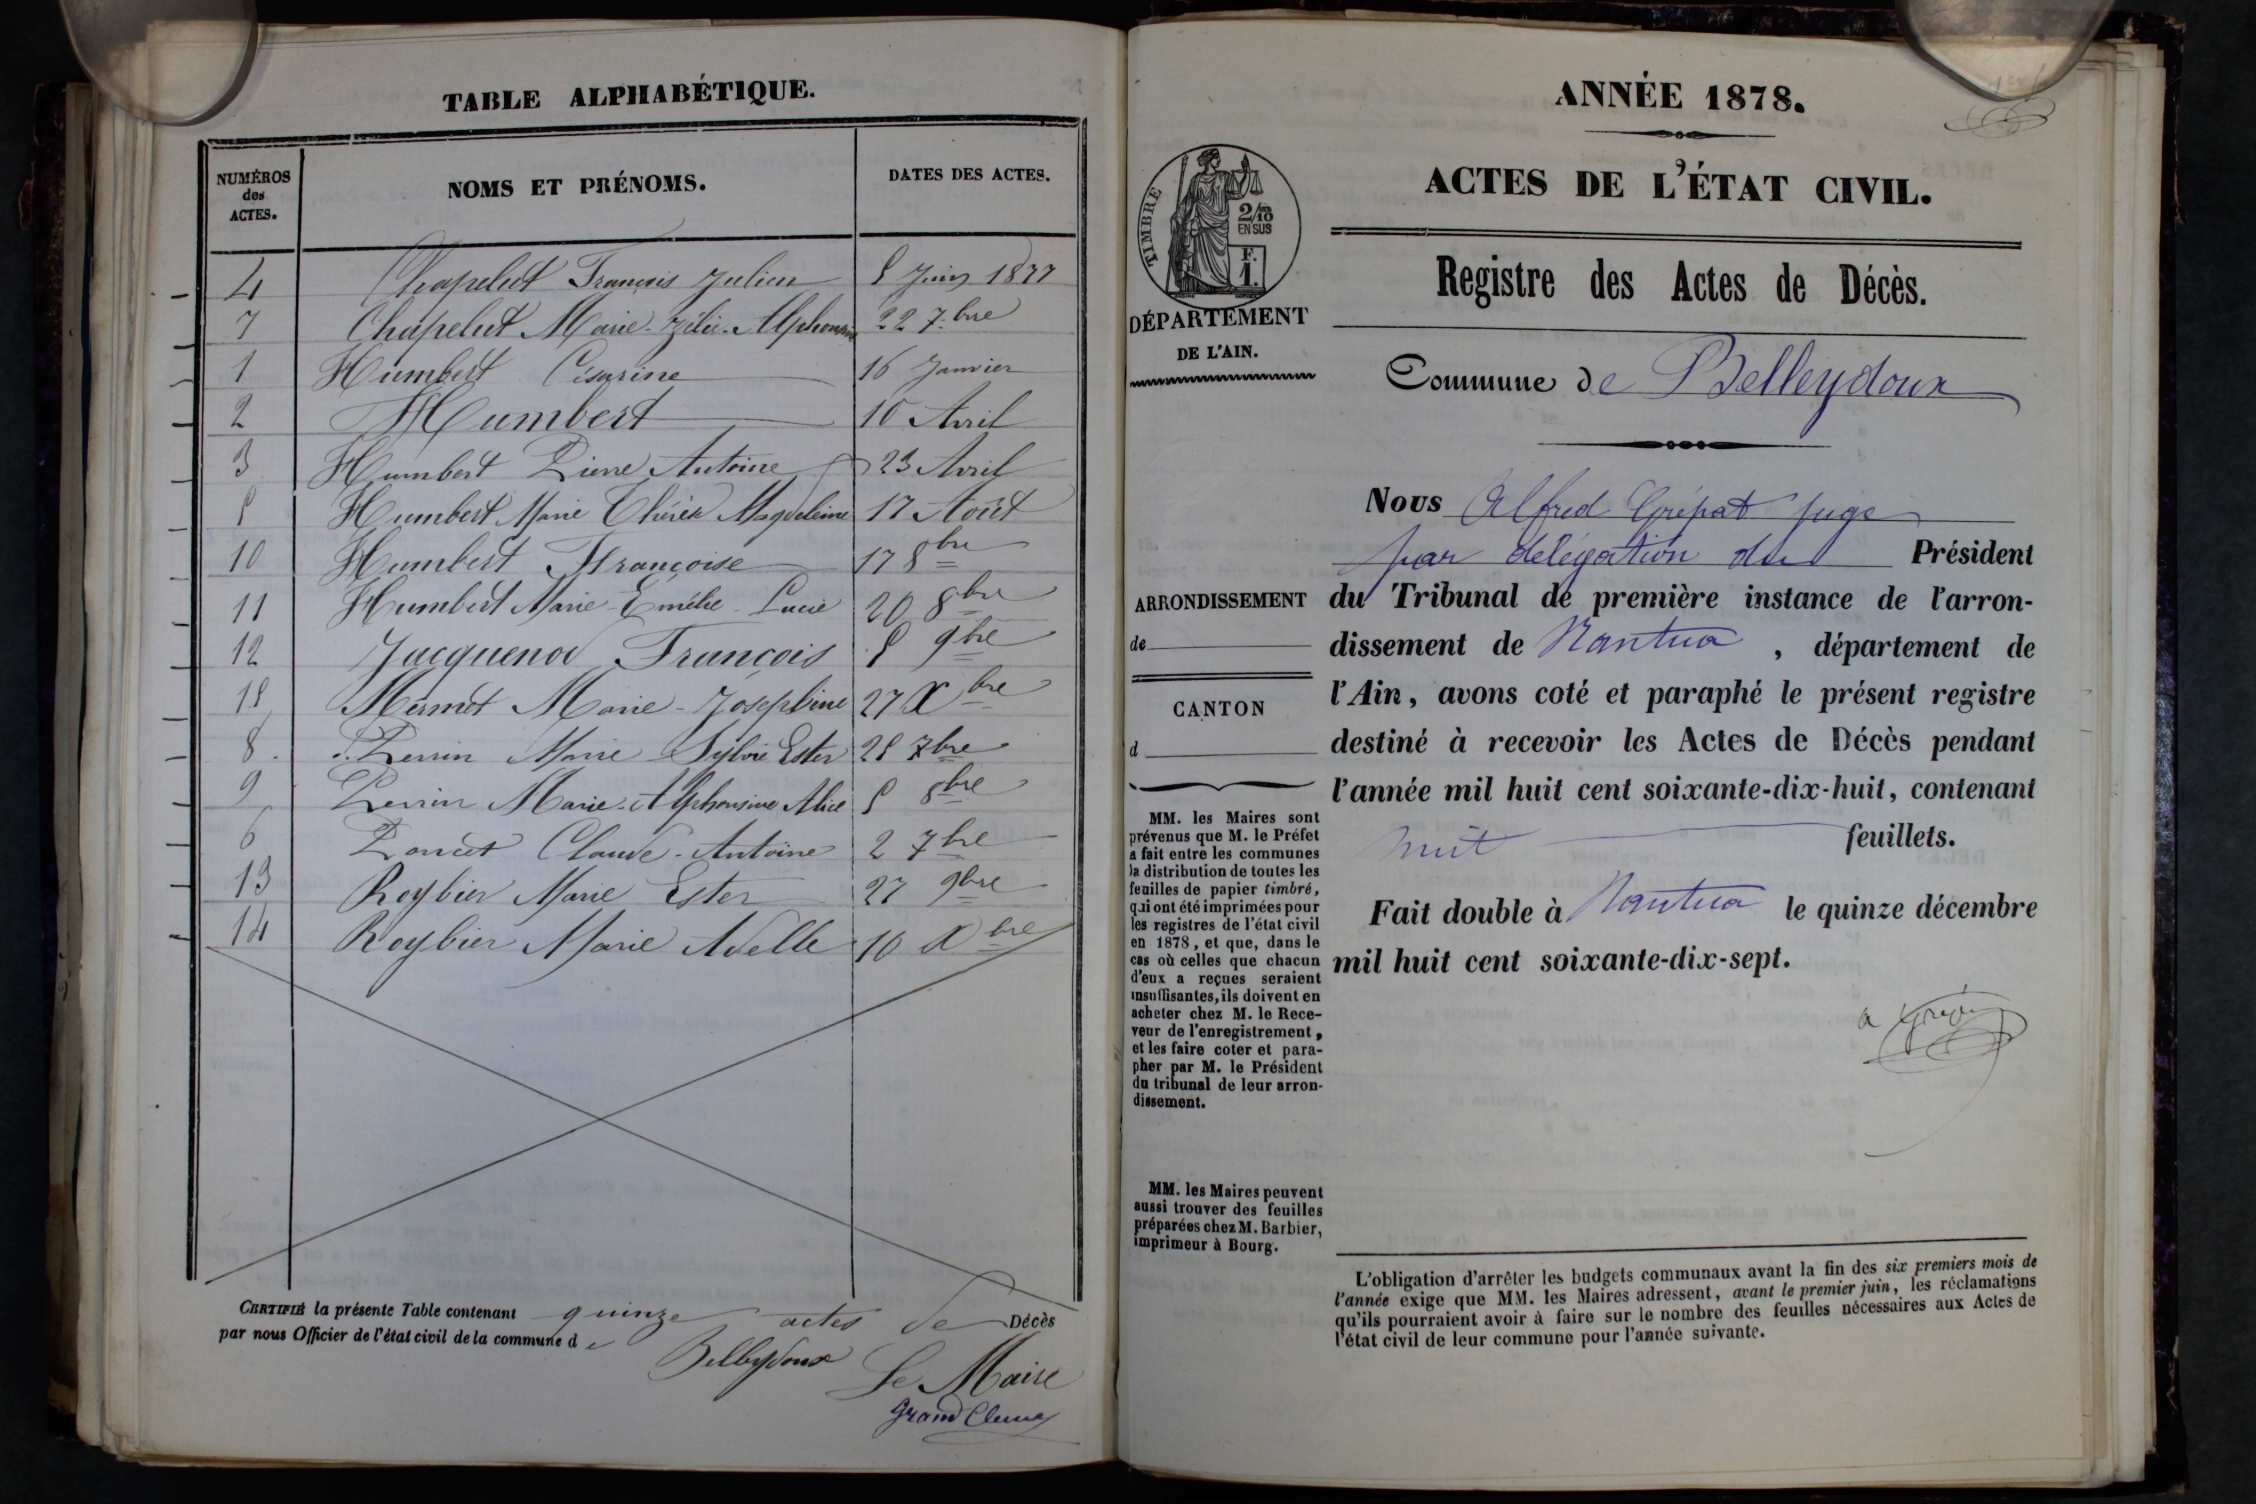 TABLE ALPHABÉTIQUE.
NUMÉROS des ACTES.
NOMS ET PRÉNOMS.
DATES DES ACTES.
4 Chapelut François Julien 5 Juin 1877
7 Chapelut Marie-Zélie-Alphonsine 22 7.bre
1 Humbert Césarine 16 Janvier
2 Humbert 10 Avril
3 Humbert Pierre Antoine 23 Avril
5 Humbert Marie Thérèse Magdeleine 17 Août
10 Humbert Françoise 17 8bre
11 Humbert Marie-Emélie-Lucie 20 8bre
12 Jacquenod François 5 9bre
15 Mermet Marie-Joséphine 27 Xbre
8. Perrin Marie Sylvie Ester 25 7bre
9 Perrin Marie-Alphonsine Alice 5 8bre
6 Poncet Claude-Antoine 2 7bre
13 Roybier Marie Ester 27 9bre
14 Roybier Marie Adelle 10 Xbre
CERTIFIÉ la présente Table contenant quinze actes de Décès
par nous Officier de l'état civil de la commune d e
Belleydoux
Le Maire
ANNÉE 1878.
ACTES DE L'ÉTAT CIVIL.
TIMBRE
2/10 EN SUS
F. 1.
DÉPARTEMENT
DE L'AIN.
Registre des Actes de Décès.
Commune de Belleydoux
Nous Alfred Grépat juge
par délégation du Président
du Tribunal de première instance de l'arron-
dissement de Nantua, département de
l'Ain, avons coté et paraphé le présent registre
destiné à recevoir les Actes de Décès pendant
l'année mil huit cent soixante-dix-huit, contenant
huit feuillets.
Fait double à Nantua le quinze décembre
mil huit cent soixante-dix-sept.
ARRONDISSEMENT
de
CANTON
d
MM. les Maires sont
prévenus que M. le Préfet
a fait entre les communes
la distribution de toutes les
feuilles de papier timbré,
qui ont été imprimées pour
les registres de l'état civil
en 1878, et que, dans le
cas où celles que chacun
d'eux a reçues seraient
insuffisantes, ils doivent en
acheter chez M. le Rece-
veur de l'enregistrement,
et les faire coter et para-
pher par M. le Président
du tribunal de leur arron-
dissement.
MM. les Maires peuvent
aussi trouver des feuilles
préparées chez M. Barbier,
imprimeur à Bourg.
L'obligation d'arrêter les budgets communaux avant la fin des six premiers mois de
l'année exige que MM. les Maires adressent, avant le premier juin, les réclamations
qu'ils pourraient avoir à faire sur le nombre des feuilles nécessaires aux Actes de
l'état civil de leur commune pour l'année suivante.